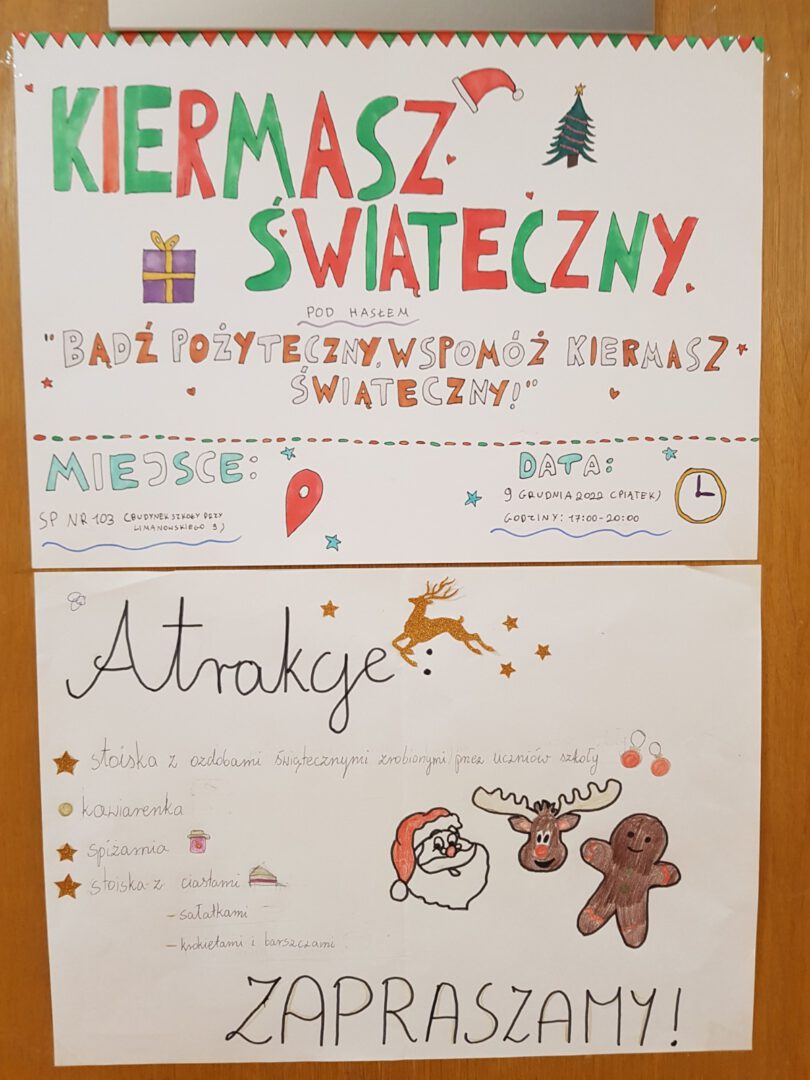 KIERMASZ
ŚWIĄTECZNY.
POD HASŁEM
"BĄDŹ POŻYTECZNY, WSPOMÓŻ KIERMASZ
ŚWIĄTECZNY!"
MIEJSCE:
SP NR 103 (BUDYNEK SZKOŁY PRZY
LIMANOWSKIEGO 9)
DATA:
9 GRUDNIA 2022 (PIĄTEK)
GODZINY: 17:00-20:00
Atrakcje:
stoiska z ozdobami świątecznymi zrobionymi przez uczniów szkoły
kawiarenka
spiżarnia
stoiska z ciastami
- sałatkami
- krokietami i barszczami
ZAPRASZAMY!